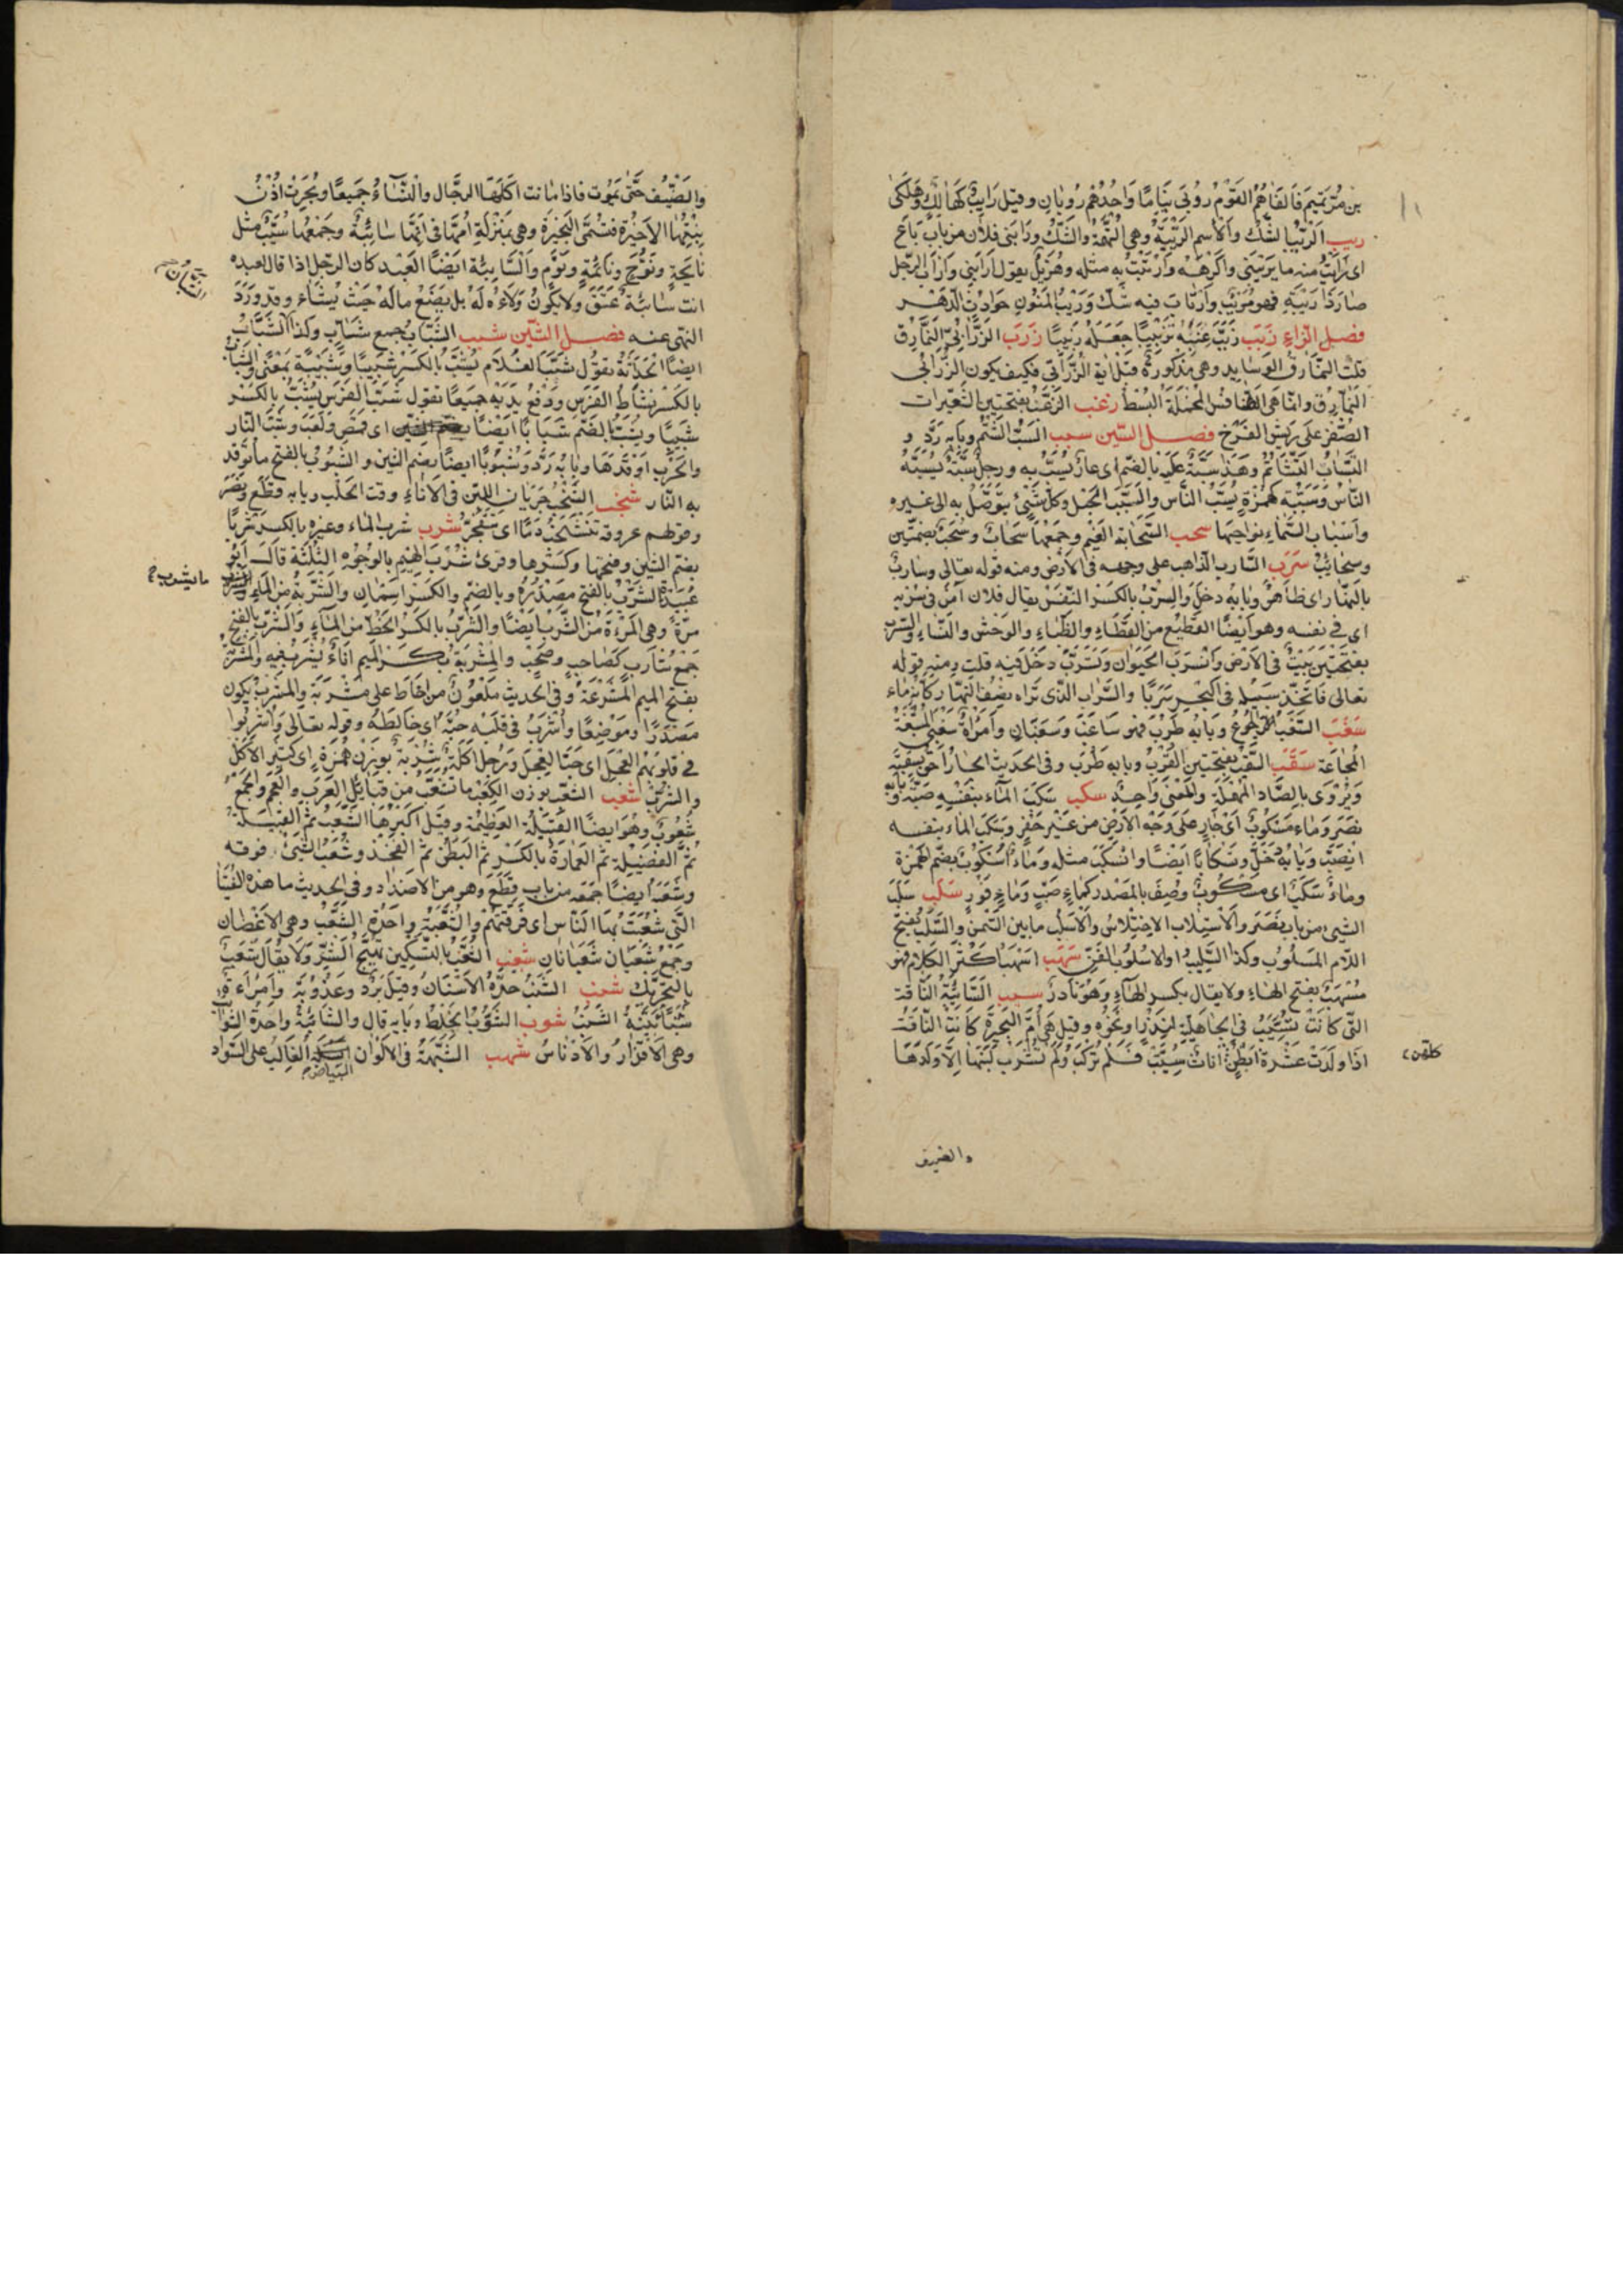 بن مُرّ بن تميم فَالفَاهُمُ القومُ رُوبَى نِيَامًا وَاحدُهُم رُوبان وقيل رَايِبٌ كَهَالِكٍ وهَلكَى
ريب الرَّيْبُ الشَّكُّ وَالاسم الرِّيْبَةُ وهى التُّهَمَة والشَّكُّ ورَابَنى فلان من باب بَاعَ
اى رَأَيْتُ منه ما يَرِيْبُنى واكْرَهُه وارْتَبْتُ به مثله وهُذَيلٌ يقول ارَابَنى وارَابَ الرجل
صَارَ ذَا رِيْبَةٍ فهو مُرِيْبٌ وارتَابَ فيه شَكَّ وَرَيْبُ المَنُونِ حوادِث الدهر
فصل الزاء زبب زَبَّبَ عِنَبَهُ تَزْبِيْبًا جَعَلَهُ زَبِيْبًا زرب الزَّرَابِىُّ النَّمَارِق
قلت النمَارِقُ الوسَايد وهى مذكورة قبل اية الزَّرَابى فكيف يكون الزرابى
النمارق وانما هى الطنافس المخملة البُسُط زغب الزَّغَبُ بفتحتين الشعيرات
الصُّفر على ريش الفرخ فصل السين سبب السَّبُّ الشَّتْمُ وبابه ردَّ و
التَّسَابُّ التَّشَاتُمُ وهذا سُبَّةٌ عليه بالضم اى عارٌ يُسَبُّ به ورجلٌ سُبَّةٌ يَسُبُّهُ
النَّاسُ وسُبَبَة كهُمَزَةٍ يَسُبُّ النَّاس والسَّبَبُ الحَبْل وكل شيئ يتوصل به الى غيره
واسباب السَّماء نواحيها سحب السَّحَابَة الغَيم وجَمْعُهَا سَحَابٌ وسُحُبٌ بضمتين
وسحائِبُ سرب السَّارب الذاهب على وجهه فى الارض ومنه قوله تعالى وساربٌ
بالنهار اى ظاهرٌ وبابه دخل والسِّرْبُ بالكَسْر النَّفْسُ يقال فلان آمنٌ فى سِرْبِه
اى فى نفسه وهو ايضًا القطيع من القَطَاءِ والظِّبَاء والوَحْش والنساء والسَّرَب
بفتحتين بَيْتٌ فى الارض وانْسَرَبَ الحيوان وتَسَرَّبَ دخل فيه قلت ومنه قوله
تعالى فاتخذ سبيله فى البَحْرِ سَرَبًا والسَّراب الذى تراه نصف النهار كانه ماء
سغب السَّغَبُ الجُوعُ وبابه طَرِبَ فهو سَاغِبٌ وسَغْبَانٌ وامْرَأَةٌ سَغْبَى والمَسْغَبَةُ
المجاعة سقب السَّقَبُ بفتحتين القُرْبُ وبابه طَرِبَ وفى الحديث الجارُ احَقُّ بِسَقَبِهِ
ويُرْوَى بالصَّاد المُهمَلَة والمَعْنى وَاحِدٌ سكب سَكَبَ المآء بنفسِهِ صَبَّهُ وبابه
نَصَرَ وماءٌ مَسْكُوبٌ اى جارٍ على وَجْهِ الارْض من غيرِ حَفْرٍ وسَكَبَ الماءُ بنفسه
انْصَبَّ وبابه دَخَلَ وتَسْكَابًا ايضًا وانْسَكَبَ مثله ومَاءٌ اُسْكُوبٌ بضم الهمزة
وماءٌ سَكْبٌ اى مسكوبٌ وُصِفَ بالمَصْدر كماءٍ صَبٍّ وماءٍ غَوْرٍ سلب سَلَبَ
الشيئ من باب نَصَرَ والاسْتِلاب الاختلاسُ والاسْلُب مابين الثمن والسَّلَبُ بفتح
اللام المَسْلُوبُ وكذا السَّلِيبُ والاُسْلُوبُ الفَنُّ سهب اسْهَبَ اكْثَر الكلام فهو
مُسْهَبٌ بفتح الهاء ولا يقال بكسر الهاء وهو نَادرٌ سيب السَّائِبَةُ النَّاقة
التى كانَتْ تُسَيَّبُ فى الجاهلية لِنَذْرٍ او نحوه وقيل هى اُمُّ البَحِيرَةِ كانت الناقة
اذا وَلَدَتْ عَشَرة ابْطُنٍ اناثٌ سُيِّبَتْ فلم تُرْكَبْ ولم تُشْرَب لَبَنُها الا وَلَدُهَا
كلهن
والضيف
والضَّيْفُ حَتّى تموت فاذا ماتت اكَلَهَا الرجال والنِّسَاءُ جَميعًا وبُحِرَت اُذُنُ
بِنْتِهَا الاخيرة فتُسَمَّى البَحِيْرَة وهى بمنزلة امها فى انّها سائِبَةٌ وجمعها سُيَّبٌ مثل
نايحة ونُوَّحٍ ونَائمة ونُوَّم والسَّايبة ايضًا العبد كان الرجل اذا قال لعبده
انت سَائبةٌ عَتَقَ ولا يكون وَلاءُه لَهُ بل يَضَعُ مالَهُ حَيْثُ يشاء وقد وَرَدَ
النهى عنه فصل الشين شبب الشَّبَابُ جمع شَابٍّ وكذا الشُّبَّانُ
الشَّبَابُ
ايضًا الحَدَاثَةُ تقول شَبَّ الغُلَام يَشِبُّ بالكسر شَبَابًا وشَبِيْبَةً بمعنى والشِّبَابُ
بالكَسْر نَشَاط الفرس ورفع يديه جميعًا تقول شَبَّ الفَرَس يَشِبُّ بالكسر
شَبِيْبًا ويشبُّ بالضم شبابًا ايضًا اى قمَصَ ولَعِبَ وشَبَّ النَّار
والحَرْب اوقدها وبابه رَدَّ وشُبُوبًا ايضًا بضم الشين والشَّبُوبُ بالفتح ما توقد
به النَّار شخب الشَّخْبُ جَرَيان اللبن فى الاناء وقت الحلب وبابه قطع ونَصَرَ
وقولهم عروقه تَنْشَخِبُ دَمًا اى تَتَفَجَّرُ شرب شَرِبَ الماء وغيره بالكسر شربًا
بضم الشين وفتحها وكسرها وقرئ شُرْبَ الهِيْم بالوُجُوهِ الثَّلَثَة قال ابو
عُبَيْدَة الشَّرْبُ بالفتح مَصْدَرٌ وبالضم والكسر اسمان والشَّرْبَةُ من الماء
ما يشرب
مَرَّةً وهى المَرَّة من الشُّرْب ايضًا والشِّرْبُ بالكَسْر الحَظّ من المآء والشَّرْب بالفتح
جَمْع شَارِبٍ كصَاحِبٍ وصَحْبٍ والمِشْرَبَةُ بكسر الميم اناءٌ يُشْرَبُ فيه والمَشْرَبَةُ
بفتح الميم المَشْرَعَةُ وفى الحديث مَلْعُونٌ من احَاطَ على مَشْرَبَةٍ والمَشْرَبُ يكون
مَصْدَرًا ومَوْضِعًا واُشْرِبَ فى قلبه حُبَّهُ اى خَالَطَهُ وقوله تعالى واُشْرِبُوا
فى قلوبهم العِجْلَ اى حُبَّ العِجْل ورجل اُكَلَةٌ شُرَبَةٌ بوزن هُمَزَةٍ اى كثير الاكل
والشرب شعب الشَّعْبُ بوزن الكَعْب ما تشعَّبَ من قبَائل العرب والعجم والجمع
شُعُوبٌ وهو ايضًا القبيلة العظيمة وقيل اكبرُها الشَّعْبُ ثم القبيلة
ثُمَّ الفَصِيْلَة ثم العِمَارة بالكسر ثم البَطْن ثم الفَخِذ وشَعَبَ الشيئ فرقه
وشَعَبَ ايضًا جَمَعَه من باب قَطَعَ وهو من الاضداد وفى الحديث ما هذه الفُتْيَا
التى شَعَبْتَ بها النَّاس اى فَرَّقْتَهُم والشُّعْبَةُ واحدة الشُّعَب وهى الاغْصان
وجَمْعُ شَعْبَان شَعْبَانَات شغب الشَّغْبُ بالتسكين تَهْيِيْجُ الشَّرِّ ولا يُقَال شَغَبٌ
بالتحريك شنب الشَّنَبُ حِدَّةُ الاسْنَان وقيل بَرْدٌ وعُذُوبَةٌ وامرأة
شَنْبَاءُ بَيِّنَةُ الشَّنَب شوب الشَّوْبُ الخَلْطُ وبابه قال والشَّائِبَةُ واحدة الشَّوَائِب
وهى الاقْذَارُ والادْنَاسُ شهب الشُّهْبَةُ فى الالوان البياض الغَالِبُ على السَّواد